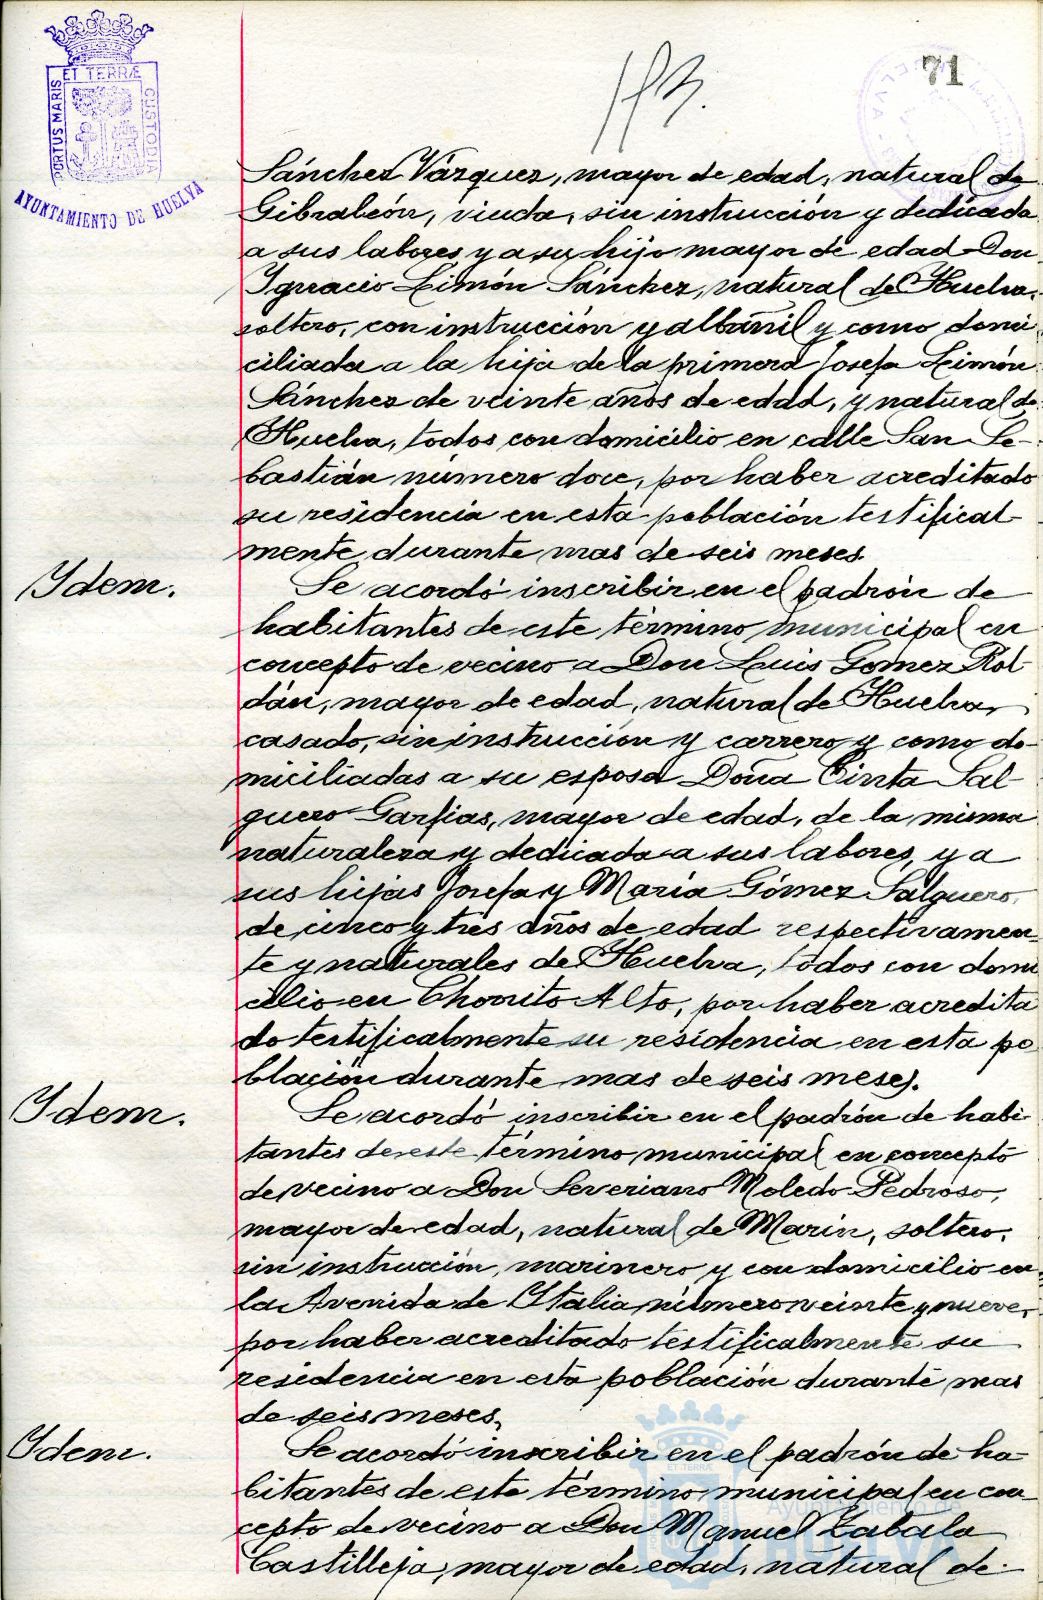 ET TERRÆ
PORTUS MARIS
CUSTODIA
AYUNTAMIENTO DE HUELVA
71
Sánchez Vázquez, mayor de edad, natural de
Gibraleón, viuda, sin instrucción y dedicada
a sus labores y a su hijo mayor de edad Don
Ignacio Limón Sánchez, natural de Huelva,
soltero, con instrucción y albañil y como domi-
ciliada a la hija de la primera Josefa Limón
Sánchez de veinte años de edad, y natural de
Huelva, todos con domicilio en calle San Se-
bastián número doce, por haber acreditado
su residencia en esta población testifical-
mente durante mas de seis meses.
Idem.
Se acordó inscribir en el padrón de
habitantes de este término municipal en
concepto de vecino a Don Luis Gomez Rol-
dán, mayor de edad, natural de Huelva,
casado, sin instrucción y carrero y como do-
miciliadas a su esposa Doña Cinta Sal-
guero Garfias, mayor de edad, de la misma
naturaleza y dedicada a sus labores, y a
sus hijas Josefa y María Gómez Salguero,
de cinco y tres años de edad respectivamen-
te y naturales de Huelva, todos con domi
cilio en Chorrito Alto, por haber acredita
do testificalmente su residencia en esta po
blación durante mas de seis meses.
Idem.
Se acordó inscribir en el padrón de habi-
tantes de este término municipal en concepto
de vecino a Don Severiano Moledo Pedroso,
mayor de edad, natural de Marín, soltero,
sin instrucción, marinero y con domicilio en
la Avenida de Italia número veinte y nueve,
por haber acreditado testificalmente su
residencia en esta población durante mas
de seis meses.
Idem.
Se acordó inscribir en el padrón de ha-
bitantes de este término municipal en con-
cepto de vecino a Don Manuel Zabala
Castilleja, mayor de edad, natural de
Ayuntamiento de
HUELVA